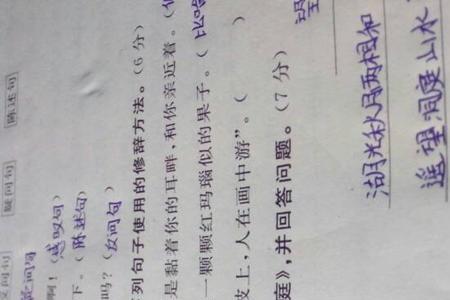 问句 疑问句 陈述句
问句
啊！（感叹句）
下。（陈述句）
吗？（反问句）
列句子使用的修辞方法。（6分）
是黏着你的耳畔，和你亲近着。（
一颗颗红玛瑙似的果子。（比喻
上，人在画中游”。（
庭》，并回答问题。（7分）
望
湖光秋月两相和
遥望洞庭山水